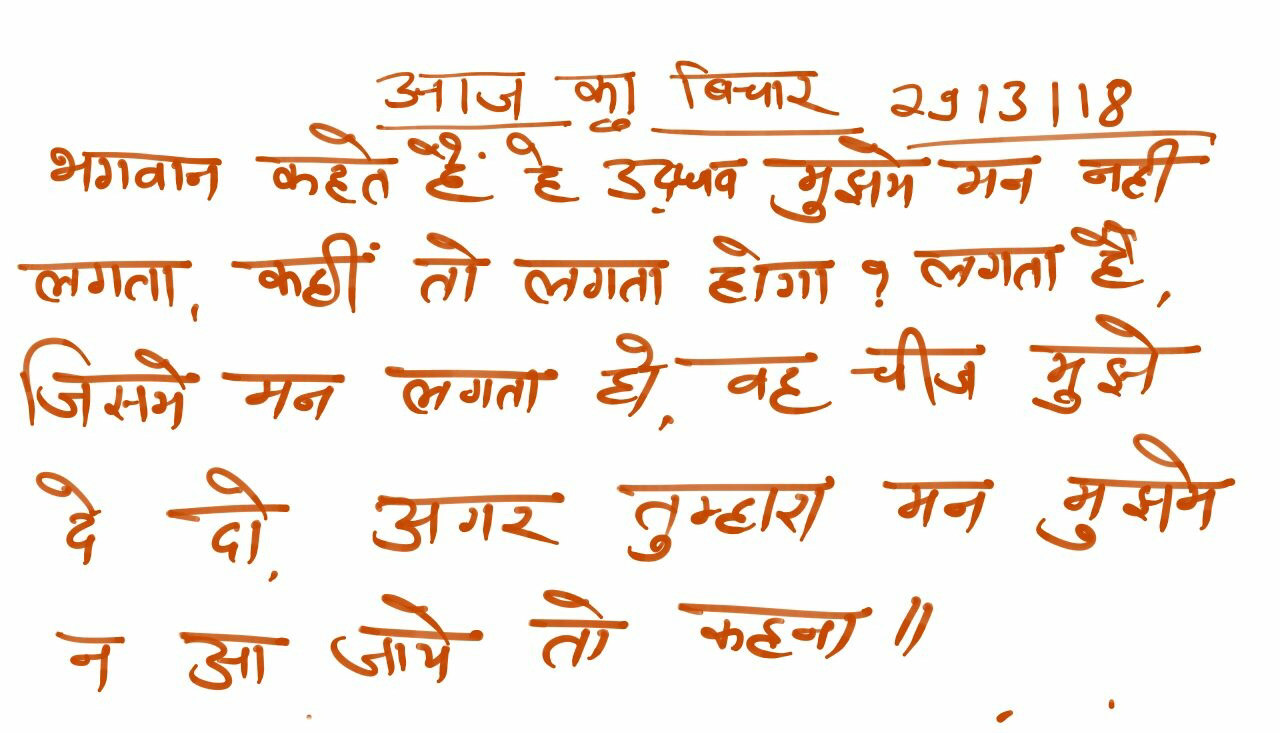 आज का बिचार 29/3/18
भगवान कहते हैं. हे उद्धव मुझमे मन नही
लगता, कहीं तो लगता होगा ? लगता है,
जिसमे मन लगता हो, वह चीज मुझे
दे दो, अगर तुम्हारा मन मुझमे
न आ जाये तो कहना ॥